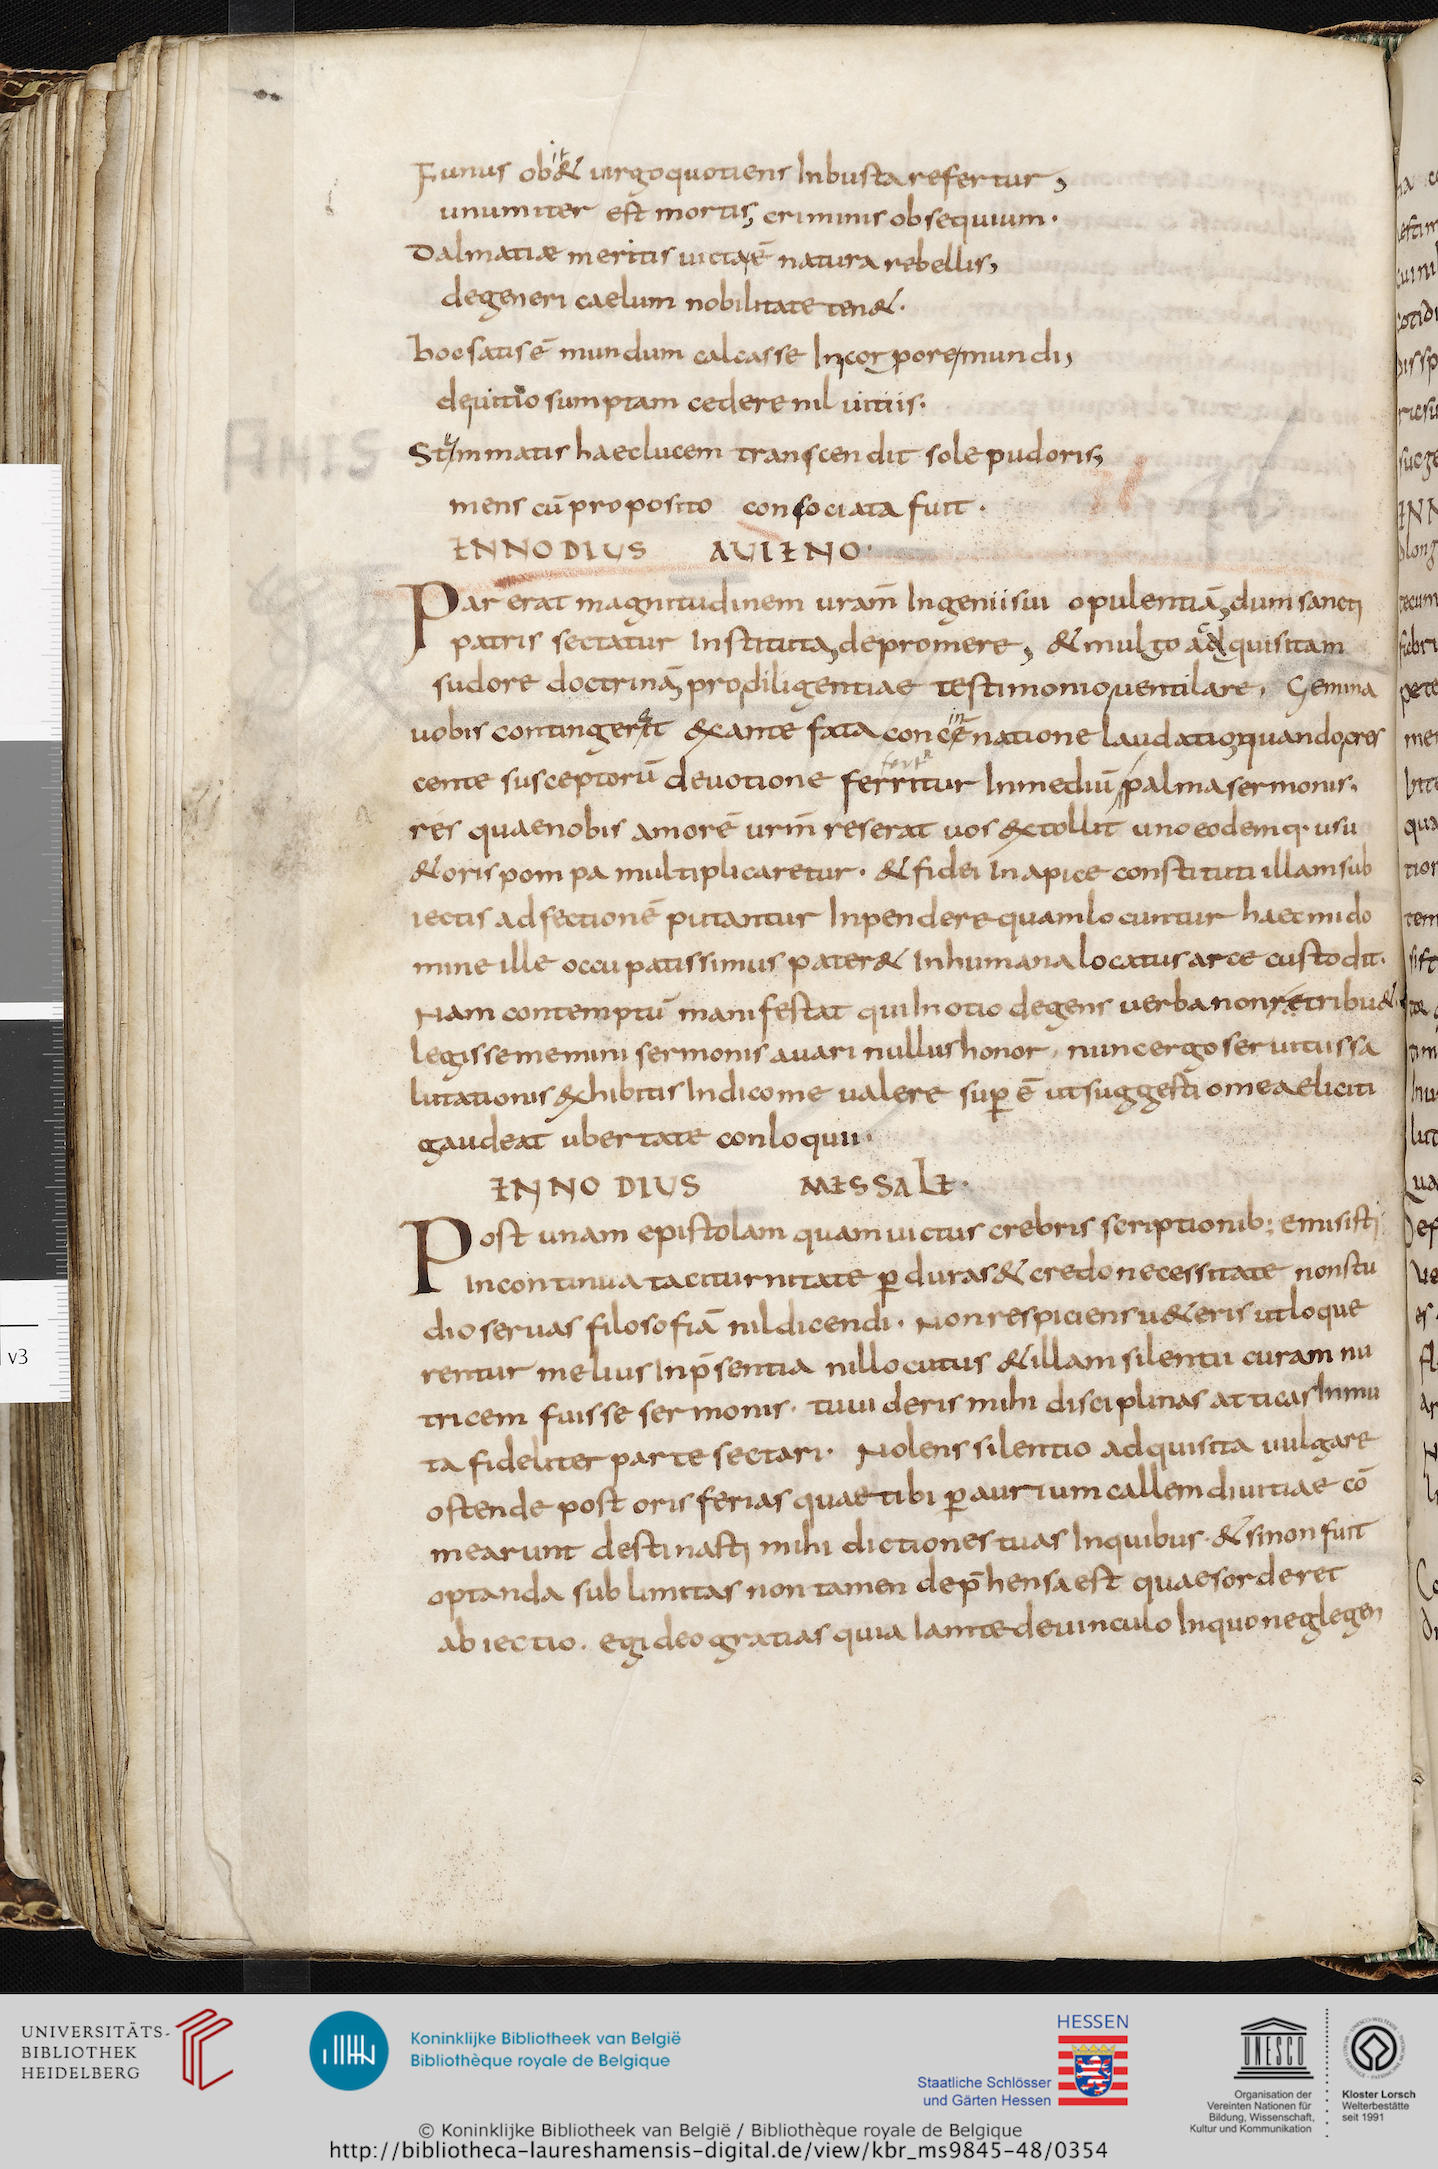 Funus ob&it uirgo quotiens Inbusta refertur,
unum iter est mortis, criminis obsequium.
Dalmatiae meritis uictaē natura rebellis,
degeneri caelum nobilitate ten&.
hoc satisē mundum calcasse Incorpore mundi,
de uitio sumptam cedere nil uitiis.
Stemmatis haec lucem transcendit sole pudoris,
mens cū proposito consociata fuit.
ANIS
ENNODIUS AVIENO.
Par erat magnitudinem uram̄ Ingenii sui opulentiā, dum sancti
patris sectatur Instituta, depromere, & multo adquisitam
sudore doctrinā, pro diligentiae testimonio uentilare. Gemina
uobis contingerit exante fata concēnatione laudatio, quando cres
cente susceptorū deuotione ferritur Inmediū palma sermonis.
res quae nobis amorē urm̄ reserat uos extollit uno eodemq. usu
& oris pompa multiplicaretur. & fidei Inapice constituti illam sub
iectis adfectionē putantur Inpendere quam locuntur haec mi do
mine ille occupatissimus pater & Inhumana locatus arce custodit.
Nam contemptū manifestat qui Inotio degens uerba non retribu&.
legisse memini sermonis auari nullus honor, nunc ergo seruitus sa
lutationis exhibitis Indico me ualere sup ē ut suggestio mea eliciti
gaudeat ubertate conloquii.
ENNODIUS MESSALE.
Post unam epistolam quam uictus crebris scriptionib; emisisti
Incontinua taciturnitate p duras & credo necessitate non stu
dio seruas filosofiā nil dicendi. Non respiciens u& eris ut loque
rentur melius Inp̄sentia nil locutus & illam silentii curam nu
tricem fuisse sermonis. tu uideris mihi disciplinas atticas Inmu
ta fideliter parte sectari. Nolens silentio adquisita uulgare
ostende post oris ferias quae tibi p aurium callem diuitiae cō
mearunt destinasti mihi dictiones tuas Inquibus. & si non fuit
optanda sublimitas non tamen dep̄hensa est quae sorderet
abiectio. egi deo gratias quia Iam te de uinculo Inquo neglegen
v3
UNIVERSITÄTS-
BIBLIOTHEK
HEIDELBERG
Koninklijke Bibliotheek van België
Bibliothèque royale de Belgique
HESSEN
Staatliche Schlösser
und Gärten Hessen
UNESCO
Organisation der
Vereinten Nationen für
Bildung, Wissenschaft,
Kultur und Kommunikation
Kloster Lorsch
Welterbestätte
seit 1991
© Koninklijke Bibliotheek van België / Bibliothèque royale de Belgique
http://bibliotheca-laureshamensis-digital.de/view/kbr_ms9845-48/0354